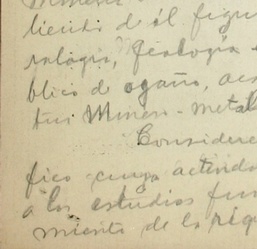 liendo d él figu
ralogía, Geología
blico de ogaño, aes
tui Minero-metal
Considere
fico cuya activid
a los estudios fun
miento de la riqu